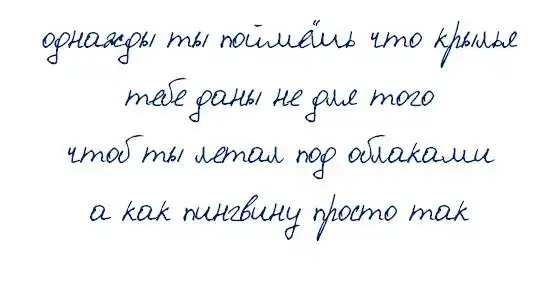 однажды ты поймёшь что крылья
тебе даны не для того
чтоб ты летал под облаками
а как пингвину просто так